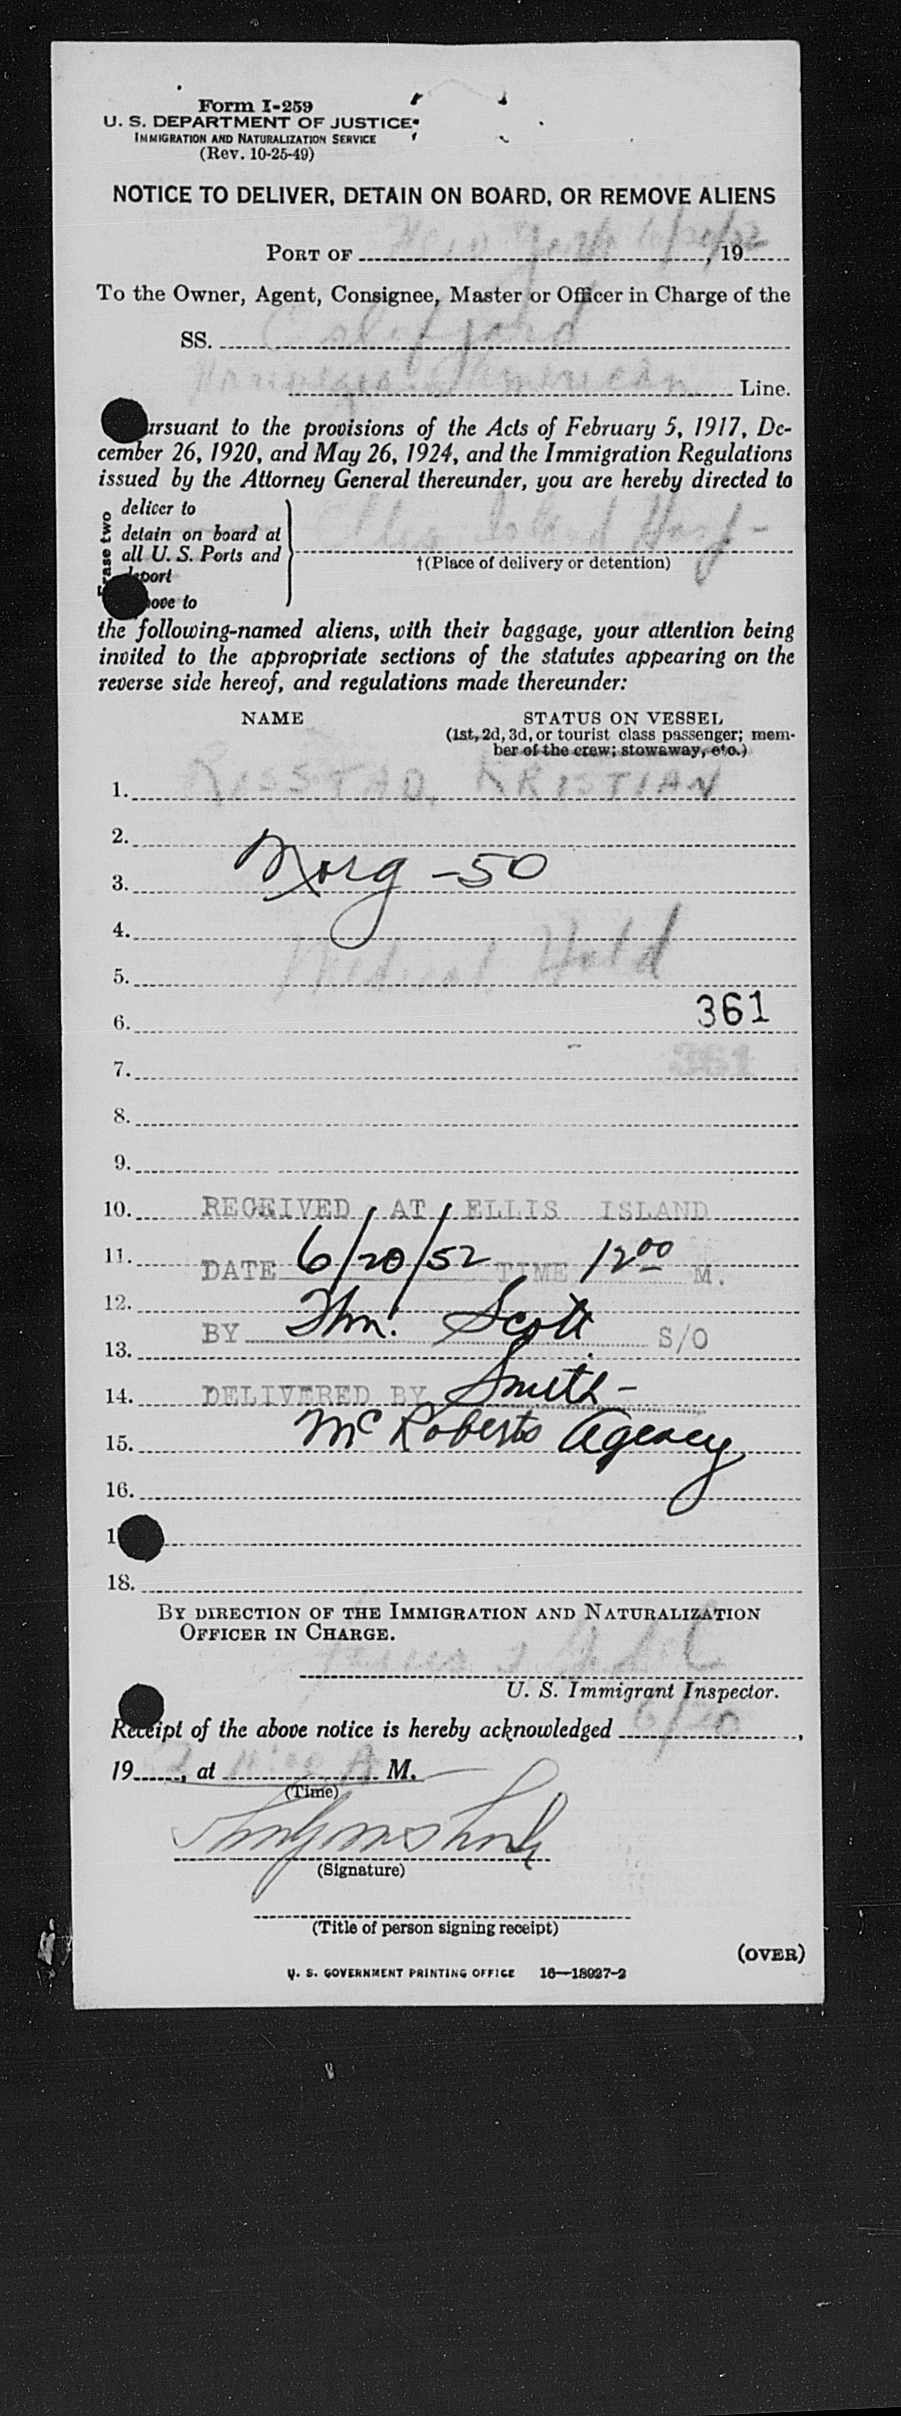 Form I-259
U. S. DEPARTMENT OF JUSTICE
IMMIGRATION AND NATURALIZATION SERVICE
(Rev. 10-25-49)
NOTICE TO DELIVER, DETAIN ON BOARD, OR REMOVE ALIENS
PORT OF New York 6/20/52, 19
To the Owner, Agent, Consignee, Master or Officer in Charge of the
SS.
American Line.
ursuant to the provisions of the Acts of February 5, 1917, De-
cember 26, 1920, and May 26, 1924, and the Immigration Regulations
issued by the Attorney General thereunder, you are hereby directed to
Erase two
deliver to
detain on board at
all U. S. Ports and
deport
ove to
Ellis Island Hosp-
†(Place of delivery or detention)
the following-named aliens, with their baggage, your attention being
invited to the appropriate sections of the statutes appearing on the
reverse side hereof, and regulations made thereunder:
NAME STATUS ON VESSEL
(1st, 2d, 3d, or tourist class passenger; mem-
ber of the crew; stowaway, etc.)
1. RISSTAD, KRISTIAN
2.
3. Norg -50
4.
5. Medical Hold
6. 361
7. 361
8.
9.
10. RECEIVED AT ELLIS ISLAND
11. DATE 6/20/52 TIME 12 00 M.
12.
13. BY Thm. Scott S/O
14. DELIVERED BY Smith-
15. McRoberts Agency
16.
1
18.
BY DIRECTION OF THE IMMIGRATION AND NATURALIZATION
OFFICER IN CHARGE.
U. S. Immigrant Inspector.
Receipt of the above notice is hereby acknowledged 6/20,
19 , at A M.
(Time)
(Signature)
(Title of person signing receipt)
(OVER)
U. S. GOVERNMENT PRINTING OFFICE 16—18927-2